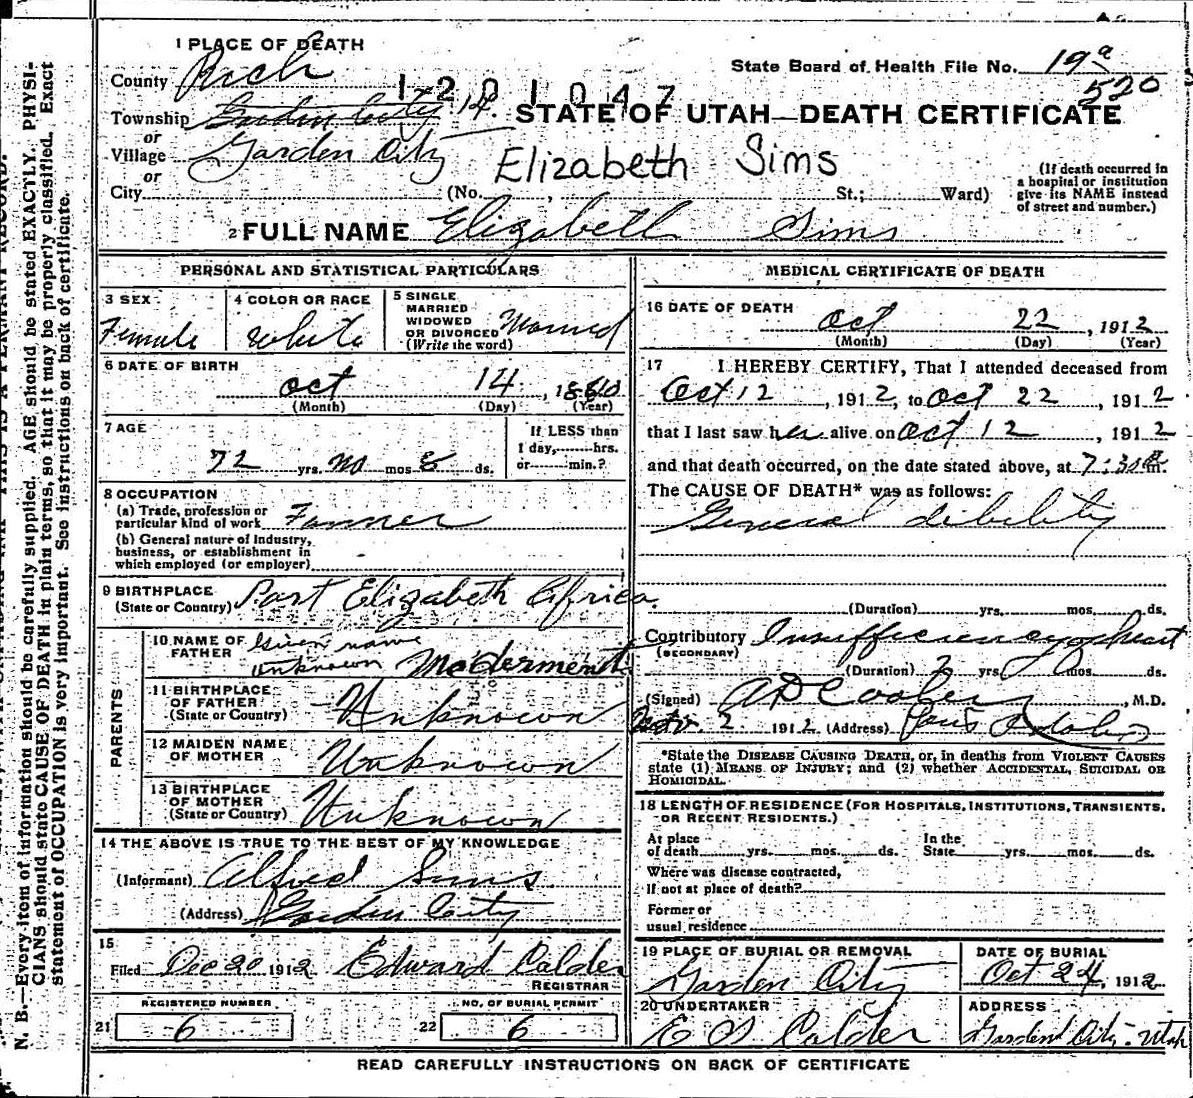 1 PLACE OF DEATH
County Rich
State Board of Health File No. 19a
520
1201047
Township Garden City 14.
STATE OF UTAH—DEATH CERTIFICATE
or
Village Garden City
or
Elizabeth Sims
City (No. , St.; Ward)
(If death occurred in
a hospital or institution
give its NAME instead
of street and number.)
2 FULL NAME Elizabeth Sims
PERSONAL AND STATISTICAL PARTICULARS
3 SEX
Female
4 COLOR OR RACE
White
5 SINGLE
MARRIED
WIDOWED
OR DIVORCED
(Write the word)
Married
6 DATE OF BIRTH
Oct 14, 1840
(Month) (Day) (Year)
7 AGE
72 yrs. no mos 8 ds.
If LESS than
1 day, hrs.
or min.?
8 OCCUPATION
(a) Trade, profession or
particular kind of work Farmer
(b) General nature of Industry,
business, or establishment in
which employed (or employer)
9 BIRTHPLACE
(State or Country) Port Elizabeth Africa.
PARENTS
10 NAME OF
FATHER
Given name
unknown McDerment
11 BIRTHPLACE
OF FATHER
(State or Country) Unknown
12 MAIDEN NAME
OF MOTHER Unknown
13 BIRTHPLACE
OF MOTHER
(State or Country) Unknown
14 THE ABOVE IS TRUE TO THE BEST OF MY KNOWLEDGE
(Informant) Alfred Sims
(Address) Garden City
15
Filed Dec 20 1912 Edward Calder
REGISTRAR
REGISTERED NUMBER
21 6
NO. OF BURIAL PERMIT
22 6
MEDICAL CERTIFICATE OF DEATH
16 DATE OF DEATH
Oct 22, 1912
(Month) (Day) (Year)
17 I HEREBY CERTIFY, That I attended deceased from
Oct 12, 1912, to Oct 22, 1912
that I last saw her alive on Oct 12, 1912
and that death occurred, on the date stated above, at 7:30 m.
The CAUSE OF DEATH* was as follows:
General dibility
(Duration) yrs. mos. ds.
Contributory Insufficiency of heart
(SECONDARY)
(Duration) 2 yrs. mos. ds.
(Signed) , M.D.
2 1912 (Address) Paris Idaho
*State the DISEASE CAUSING DEATH, or, in deaths from VIOLENT CAUSES
state (1) MEANS OF INJURY; and (2) whether ACCIDENTAL, SUICIDAL OR
HOMICIDAL.
18 LENGTH OF RESIDENCE (FOR HOSPITALS, INSTITUTIONS, TRANSIENTS,
OR RECENT RESIDENTS.)
At place
of death yrs. mos. ds.
In the
State yrs. mos. ds.
Where was disease contracted,
if not at place of death?
Former or
usual residence
19 PLACE OF BURIAL OR REMOVAL
Garden City
DATE OF BURIAL
Oct 24, 1912
20 UNDERTAKER
Calder
ADDRESS
Garden City, Utah
READ CAREFULLY INSTRUCTIONS ON BACK OF CERTIFICATE
N. B.—Every item of information should be carefully supplied. AGE should be stated EXACTLY. PHYSI-
CIANS should state CAUSE OF DEATH in plain terms, so that it may be properly classified. Exact
statement of OCCUPATION is very important. See instructions on back of certificate.